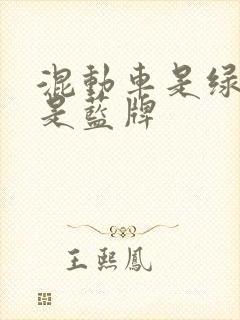 混動車是绿
是藍牌
王熙鳳